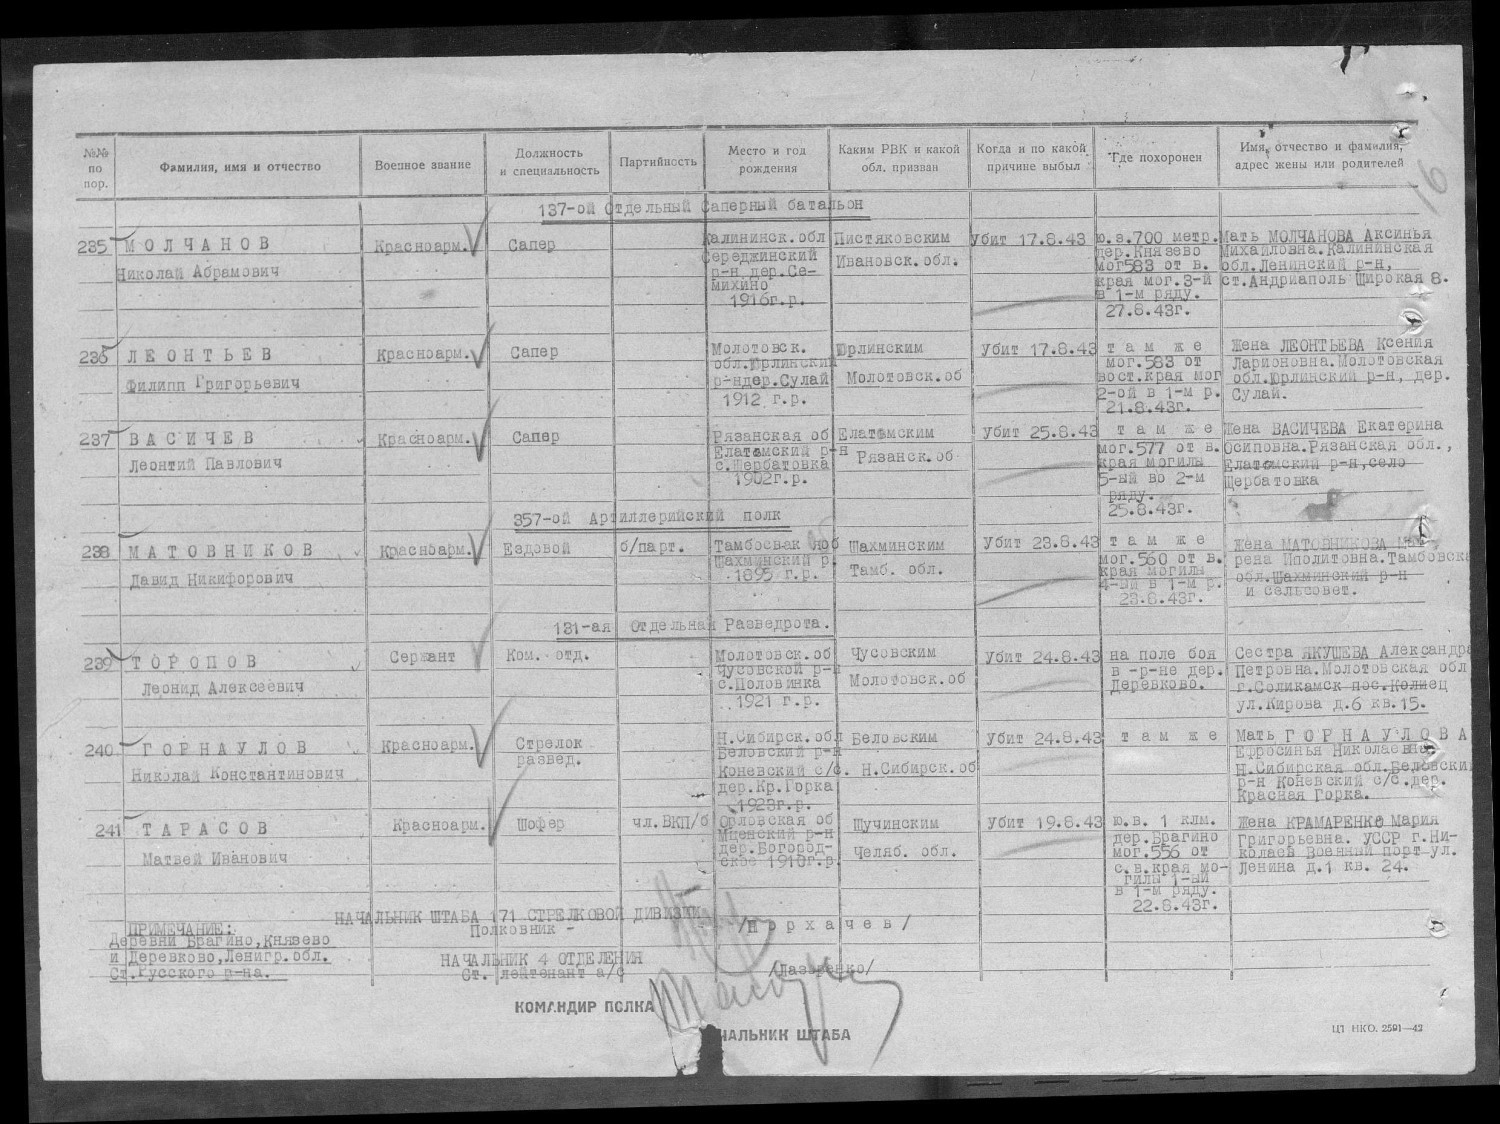 №№ по пор.
Фамилия, имя и отчество
Военное звание
Должность и специальность
Партийность
Место и год рождения
Каким РВК и какой обл. призван
Когда и по какой причине выбыл
Где похоронен
Имя, отчество и фамилия, адрес жены или родителей
16
137-ой отдельный саперный батальон
235 МОЛЧАНОВ
Николай Абрамович
Красноарм.
Сапер
Калининск.обл
Середжинский
р-н дер.Се-
михино
1916г.р.
Пистяковским
Ивановск.обл.
Убит 17.8.43
ю.в.700 метр.
дер.Князево
мог583 от в.
края мог.3-й
в 1-м ряду.
27.8.43г.
Мать МОЛЧАНОВА Аксинья
Михайловна.Калининская
обл.Ленинский р-н,
ст.Андриаполь Широкая 8.
236 ЛЕОНТЬЕВ
Филипп Григорьевич
Красноарм.
Сапер
Молотовск.
обл.Юрлинский
р-ндер.Сулай
1912 г.р.
Юрлинским
Молотовск.об
Убит 17.8.43
там же
мог.583 от
вост.края мог
2-ой в 1-м р.
21.8.43г.
Жена ЛЕОНТЬЕВА Ксения
Ларионовна.Молотовская
обл.Юрлинский р-н, дер.
Сулай.
237 ВАСИЧЕВ
Леонтий Павлович
Красноарм.
Сапер
Рязанская об
Елатомский р-н
с.Щербатовка
1902г.р.
Елатомским
Рязанск.об
Убит 25.8.43
там же
мог.577 от в.
края могилы
5-ый во 2-м
ряду.
25.8.43г.
Жена ВАСИЧЕВА Екатерина
Осиповна.Рязанская обл.,
Елатомский р-н,село
Щербатовка
357-ой Артиллерийский полк
238 МАТОВНИКОВ
Давид Никифорович
Красноарм.
Ездовой
б/парт.
Шахминский р.
1895 г.р.
Шахминским
Тамб. обл.
Убит 23.8.43
там же
мог.560 от в.
края могилы
4-ый в 1-м р.
23.8.43г.
Жена МАТОВНИКОВА
рена Иполитовна.Тамбовска
обл.Шахминский р-н
и сельсовет.
131-ая Отдельная Разведрота.
239 ТОРОПОВ
Леонид Алексеевич
Сержант
Ком. отд.
Молотовск.об
Чусовской р-н
с.Половинка
1921 г.р.
Чусовским
Молотовск.об
Убит 24.8.43
на поле боя
в -р-не дер.
Деревково.
Сестра ЯКУШЕВА Александра
Петровна.Молотовская обл
г.Соликамск пос.Колиец
ул.Кирова д.6 кв.15.
240 ГОРНАУЛОВ
Николай Константинович
Красноарм.
Стрелок
развед.
Н.Сибирск.обл
Беловский р-н
Коневский с/с.
дер.Кр.Горка
1923г.р.
Беловским
Н.Сибирск.об
Убит 24.8.43
там же
Мать ГОРНАУЛОВА
Ефросинья Николаевна
Н.Сибирская обл.Беловский
р-н Коневский с/с.дер.
Красная Горка.
241 ТАРАСОВ
Матвей Иванович
Красноарм.
Шофер
чл.ВКП/б
Орловская об
Мценский р-н
дер.Богород-
ское 1910г.р.
Щучинским
Челяб. обл.
Убит 19.8.43
ю.в. 1 клм.
дер.Брагино
мог.556 от
с.в.края мо-
гилы 1-ый
в 1-м ряду.
22.8.43г.
Жена КРАМАРЕНКО Мария
Григорьевна. УССР г.Ни-
колаев Военный порт-ул.
Ленина д.1 кв. 24.
ПРИМЕЧАНИЕ:
Деревни Брагино,Князево
и Деревково,Ленигр.обл.
Ст.Русского р-на.
НАЧАЛЬНИК ШТАБА 171 СТРЕЛКОВОЙ ДИВИЗИИ
Полковник -
/Порхачев/
НАЧАЛЬНИК 4 ОТДЕЛЕНИЯ
Ст. лейтенант а/с
/Лазаренко/
КОМАНДИР ПОЛКА
НАЧАЛЬНИК ШТАБА
ЦТ НКО. 2591—42